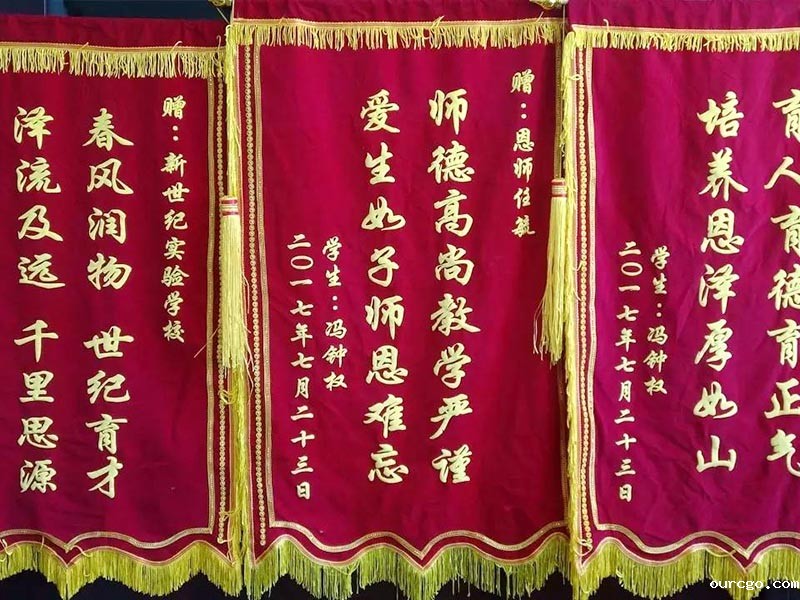 赠：新世纪实验学校
春风润物 世纪育才
泽流及远 千里思源
赠：恩师任毓
师德高尚教学严谨
爱生如子师恩难忘
学生：冯钟权
二〇一七年七月二十三日
育人育德育正气
培养恩泽厚如山
学生：冯钟权
二〇一七年七月二十三日
ourcgo.com